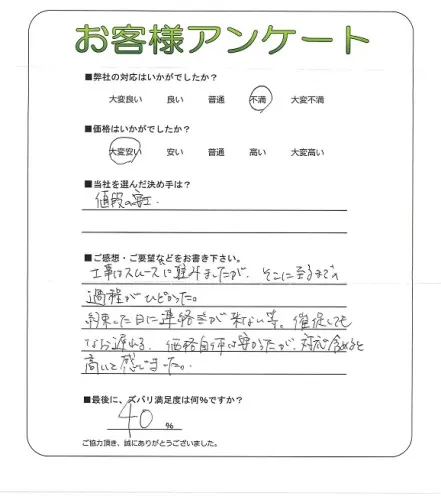 お客様アンケート
■弊社の対応はいかがでしたか？
大変良い 良い 普通 不満 大変不満
■価格はいかがでしたか？
大変安い 安い 普通 高い 大変高い
■当社を選んだ決め手は？
値段の安さ.
■ご感想・ご要望などをお書き下さい。
工事はスムーズに進みましたが、そこに至るまでの
過程がひどかった。
約束した日に連絡が来ない等。催促しても
なお遅れる。価格自体は安かったが、対応含めると
高いと感じました。
■最後に、ズバリ満足度は何%ですか？
40 %
ご協力頂き、誠にありがとうございました。